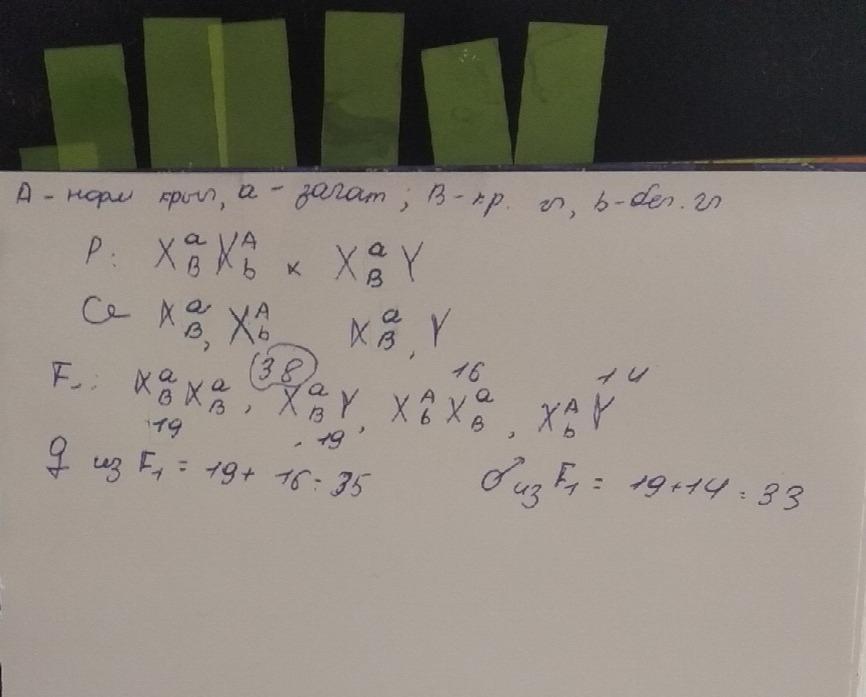 A - норм крыл, a - загат; B - кр. гл, b - бел. гл
P: X^a_B X^A_b x X^a_B Y
G X^a_B, X^A_b X^a_B, Y
F₁: X^a_B X^a_B, (38) X^a_B Y, X^A_b X^a_B, X^A_b Y
19 19 16 14
♀ из F₁ = 19 + 16 = 35 ♂ из F₁ = 19 + 14 = 33